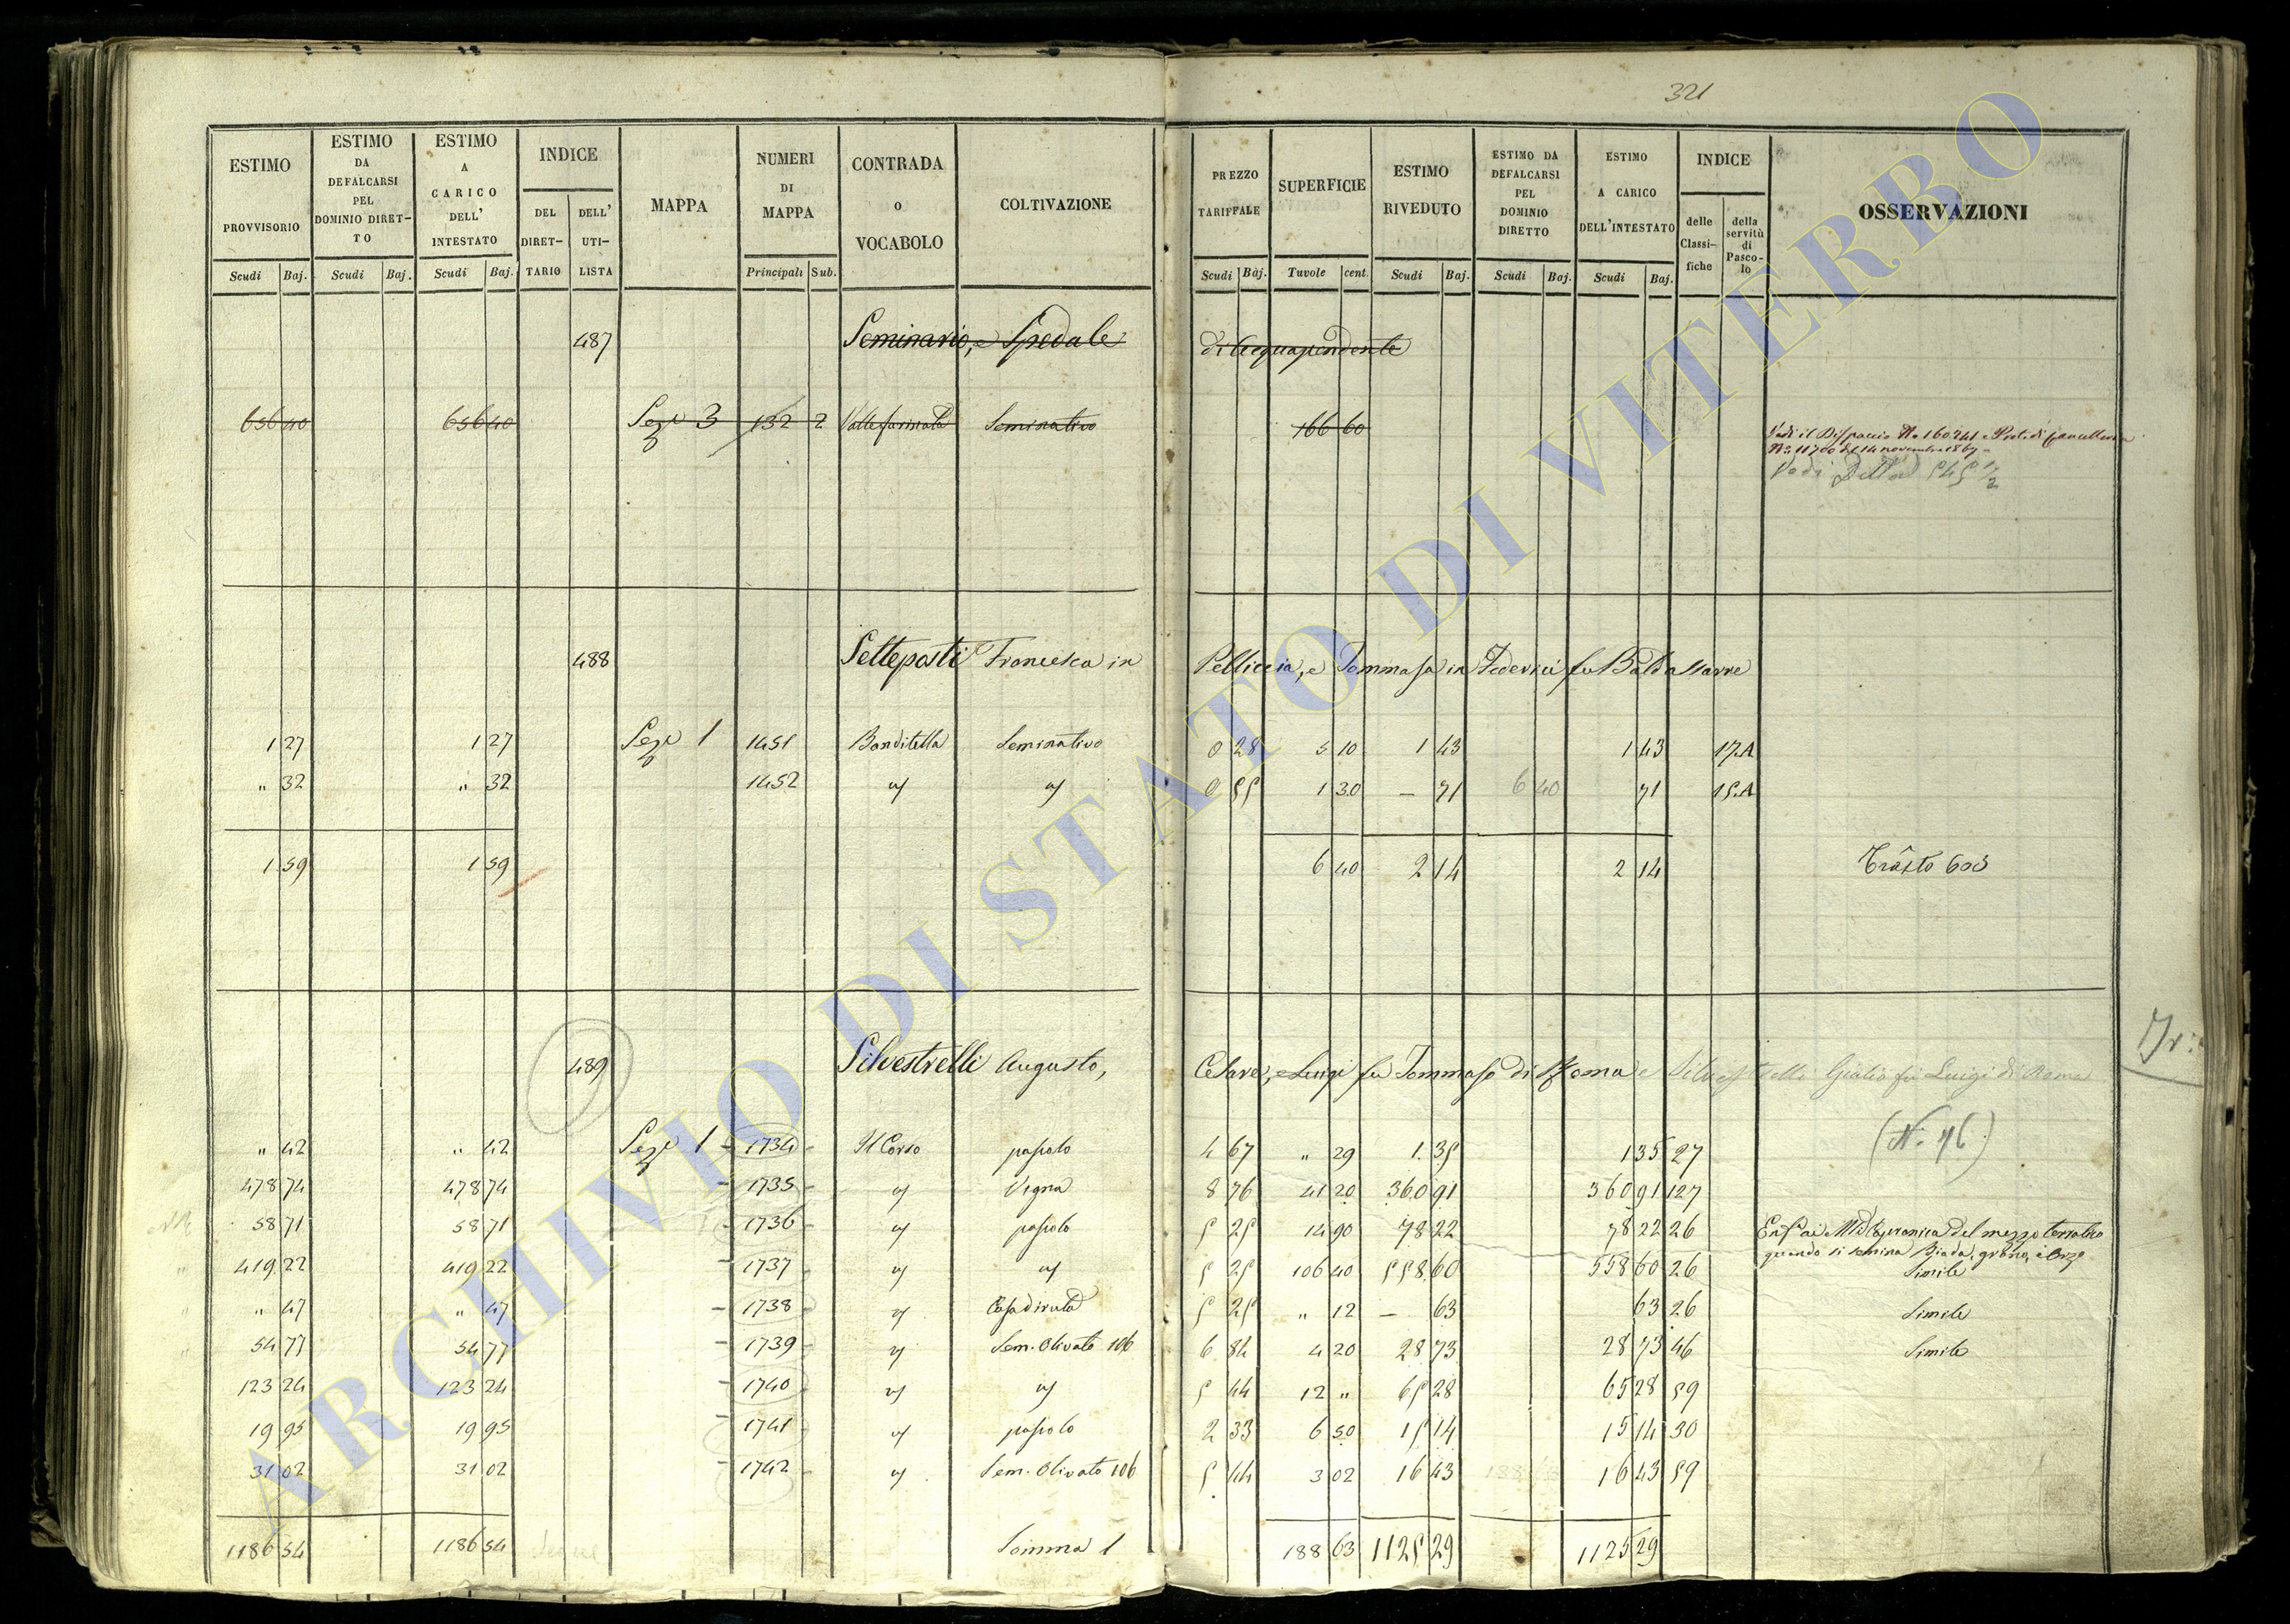 321
ESTIMO PROVVISORIO | ESTIMO DA DEFALCARSI PEL DOMINIO DIRETTO | ESTIMO A CARICO DELL' INTESTATO | INDICE DEL DIRETTARIO | DELL' UTILISTA | MAPPA | NUMERI DI MAPPA | CONTRADA O VOCABOLO | COLTIVAZIONE | PREZZO TARIFFALE | SUPERFICIE | ESTIMO RIVEDUTO | ESTIMO DA DEFALCARSI PEL DOMINIO DIRETTO | ESTIMO A CARICO DELL'INTESTATO | INDICE delle Classifiche | della servitù di Pascolo | OSSERVAZIONI
Scudi Baj. | Scudi Baj. | Scudi Baj. | Principali Sub. | Scudi Baj. | Tavole cent. | Scudi Baj. | Scudi Baj. | Scudi Baj.
487 Seminario, e Spedale di Acquapendente
656 40 | 656 40 | Sez.e 3 | 132 2 | Vallefarinata | Seminativo | 166 60
Vedi il Dispaccio N.o 160241 e Prot. di Cancelleria
N.o 11700 del 14 novembre 1867
Vedi Della 545 1/2
488 Setteposti Francesca in Pelliccia, e Tommasa in Federici fu Baldassarre
1 27 | 1 27 | Sez.e 1 | 1451 | Banditella | Seminativo | 0 28 | 5 10 | 1 43 | 1 43 | 17.A
" 32 | " 32 | 1452 | o/ | o/ | 0 55 | 1 30 | — 71 | 6 40 | 71 | 15.A
1 59 | 1 59 | 6 40 | 2 14 | 2 14 | Trasto 603
489 Silvestrelli Augusto, Cesare, e Luigi fu Tommaso di Roma e Silvestrelli Giulio fu Luigi di Roma
(N. 76)
" 42 | " 42 | Sez.e 1 | 1734 | Il Corso | pascolo | 4 67 | " 29 | 1.35 | 1 35 | 27
478 74 | 478 74 | 1735 | o/ | Vigna | 8 76 | 41 20 | 360 91 | 360 91 | 127
58 71 | 58 71 | 1736 | o/ | pascolo | 5 25 | 14 90 | 78 22 | 78 22 | 26
quando si semina Biada, grano, e Orzo
419 22 | 419 22 | 1737 | o/ | o/ | 5 25 | 106 40 | 558.60 | 558 60 | 26 | Simile
" 47 | " 47 | 1738 | o/ | Casa diruta | 5 25 | " 12 | — 63 | 63 | 26 | Simile
54 77 | 54 77 | 1739 | o/ | Sem. Olivato 106 | 6 84 | 4 20 | 28 73 | 28 73 | 46 | Simile
123 24 | 123 24 | 1740 | o/ | o/ | 5 44 | 12 " | 65 28 | 65 28 | 59
19 95 | 19 95 | 1741 | o/ | pascolo | 2 33 | 6 50 | 15 14 | 15 14 | 30
31 02 | 31 02 | 1742 | o/ | Sem. Olivato 106 | 5 44 | 3 02 | 16 43 | 16 43 | 59
1186 54 | 1186 54 | Segue | Somma 1 | 188 63 | 1125 29 | 1125 29
ARCHIVIO DI STATO DI VITERBO